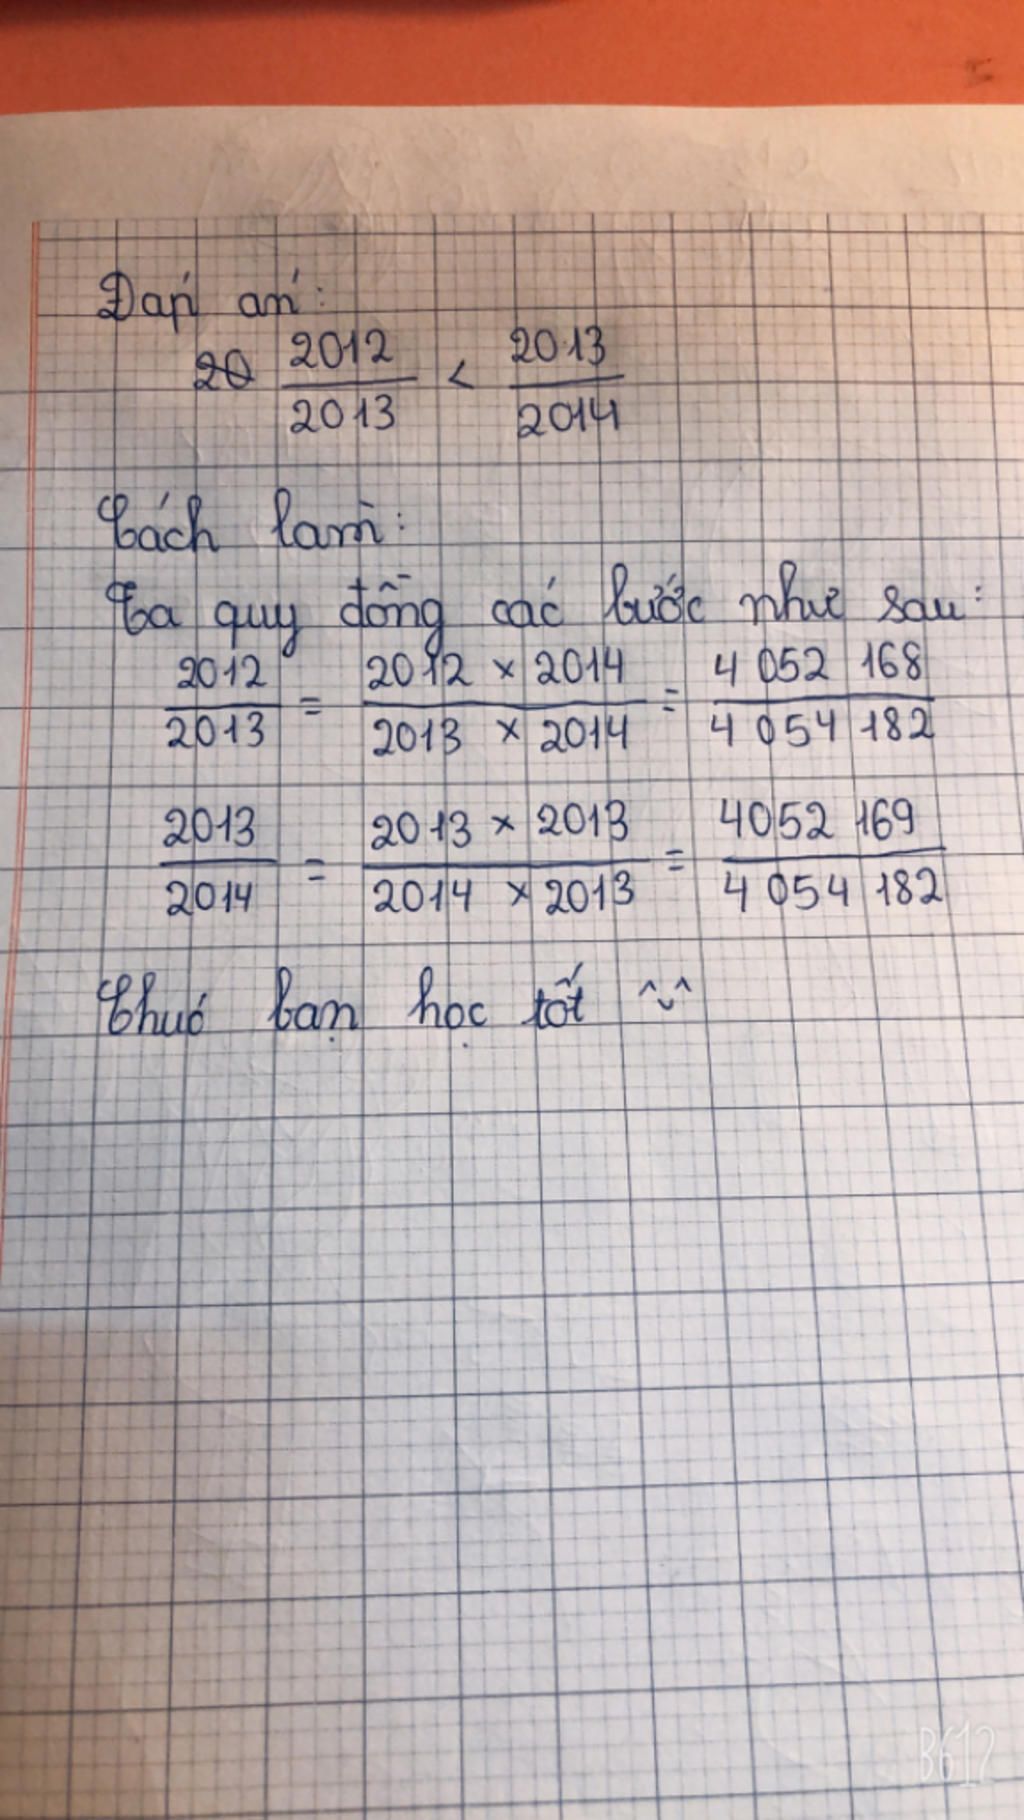 Đáp án:
20 2012/2013 < 2013/2014
Cách làm:
Ta quy đồng các bước như sau:
2012/2013 = 2012 × 2014/2013 × 2014 = 4 052 168/4 054 182
2013/2014 = 2013 × 2013/2014 × 2013 = 4052 169/4 054 182
Chúc bạn học tốt ^ᴗ^
B612